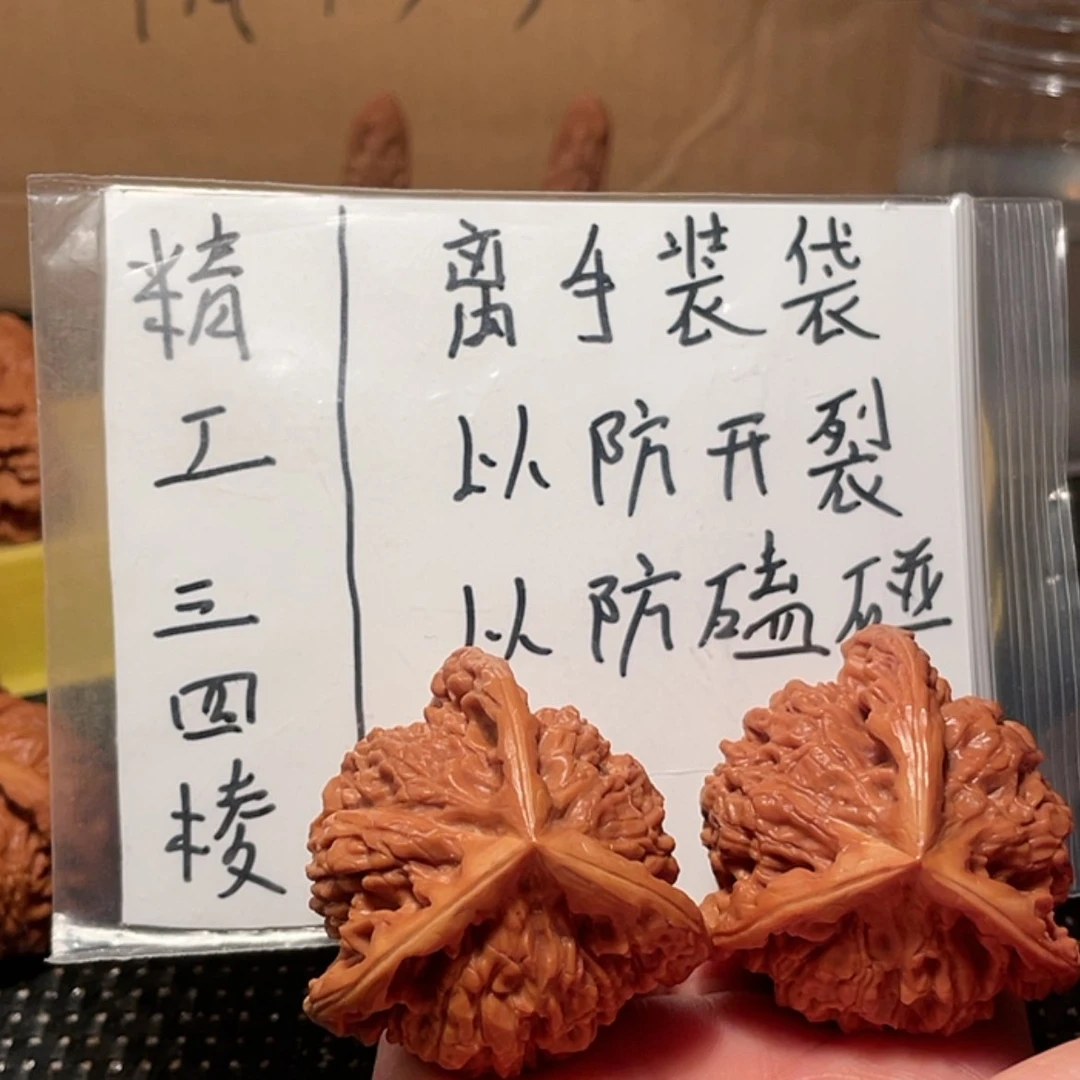 精工三四棱
离手装袋
以防开裂
以防磕碰